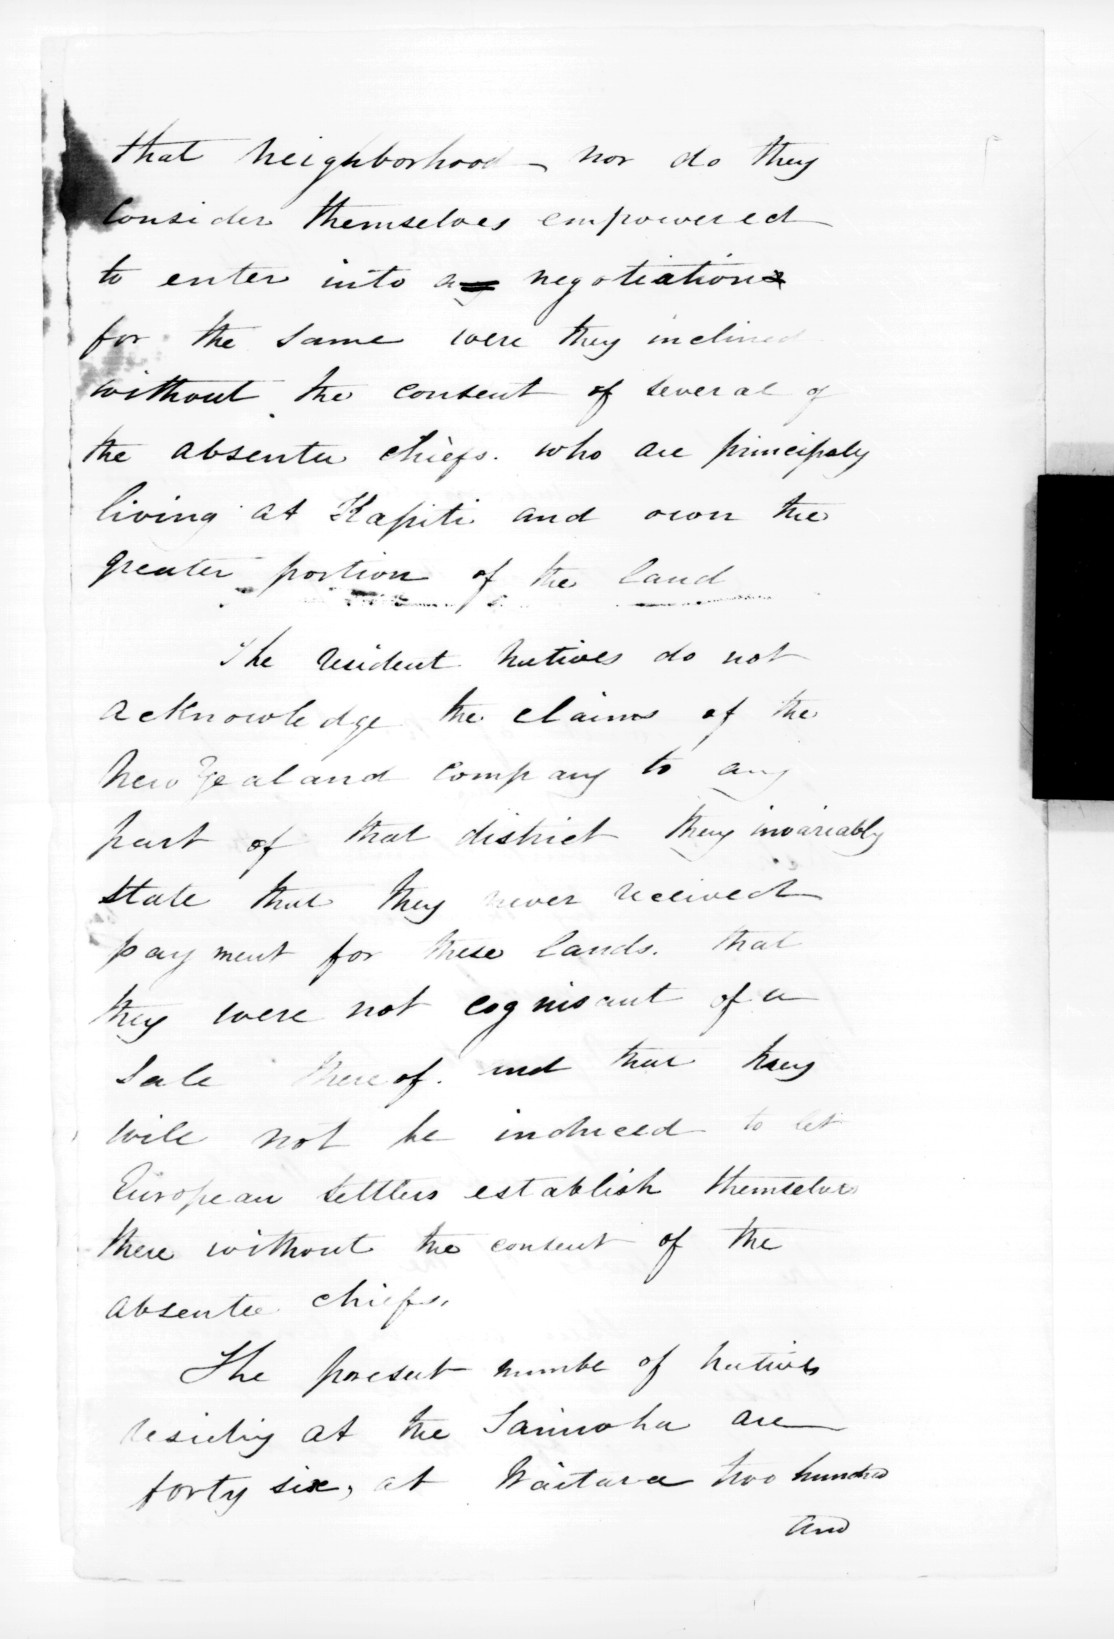 that neighborhood – nor do they
Consider themselves empowered
to enter into a negotiation
for the same were they inclined
without the consent of several of
the absentee chiefs. who are principaly
living at Kapiti and own the
greater portion of the land
The resident Natives do not
acknowledge the claims of the
New Zealand Company to any
part of that district they invariably
state that they never received
payment for these lands. that
they were not cognisant of a
Sale thereof. and that they
will not be induced to let
European settlers establish themselves
there without the consent of the
absentee chiefs.
The present numbe of Natives
residing at the are
forty six, at Waitara two hundred
and